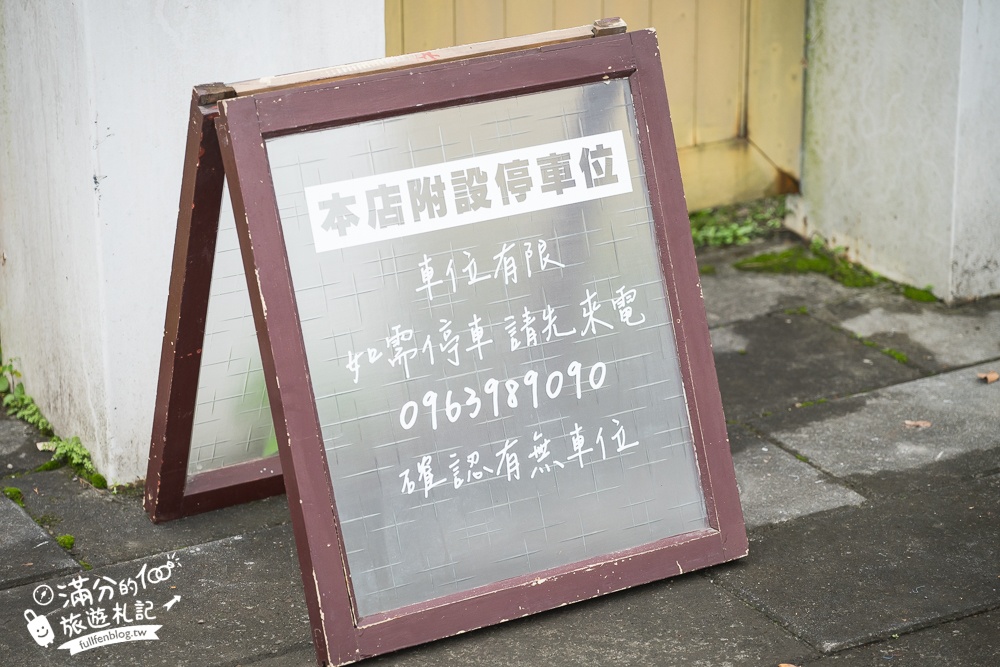 本店附設停車位
車位有限
如需停車請先來電
0963989090
確認有無車位
滿分的100
旅遊札記
fullfenblog.tw